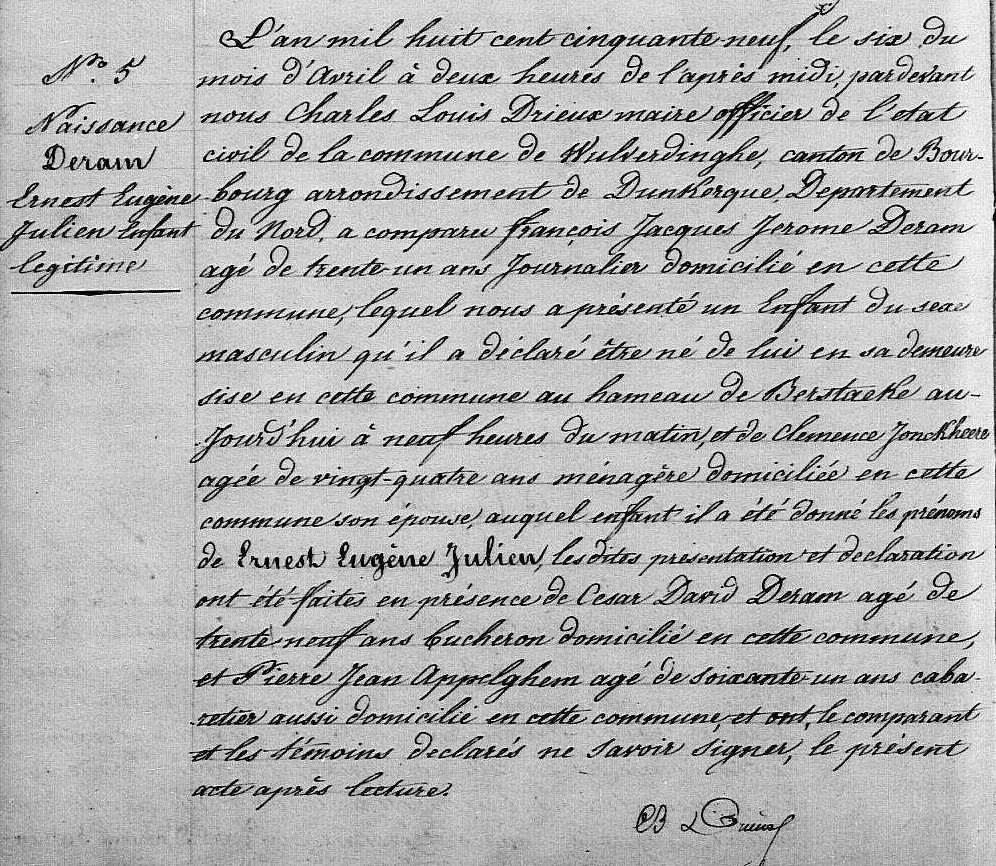 N° 5
Naissance
Deram
Ernest Eugène
Julien Enfant
legitime
L'an mil huit cent cinquante-neuf, le six du
mois d'Avril à deux heures de l'après midi, pardevant
nous Charles Louis Drieux maire officier de l'etat
civil de la commune de Wulverdinghe, canton de Bour-
bourg arrondissement de Dunkerque, Departement
du Nord, a comparu françois Jacques Jerome Deram
agé de trente-un ans Journalier domicilié en cette
commune, lequel nous a présenté un Enfant du sexe
masculin qu'il a déclaré être né de lui en sa demeure
sise en cette commune au hameau de Berstacke au-
Jourd'hui à neuf heures du matin, et de Clemence Jonckheere
agée de vingt-quatre ans ménagère domiciliée en cette
commune son épouse, auquel enfant il a été donné les prénoms
de Ernest Eugène Julien, les dites présentation et declaration
ont été faites en présence de Cesar David Deram agé de
trente neuf ans bucheron domicilié en cette commune,
et Pierre Jean Appelghem agé de soixante-un ans caba-
retier aussi domicilié en cette commune, et ont, le comparant
et les témoins declarés ne savoir signer, le présent
acte après lecture.